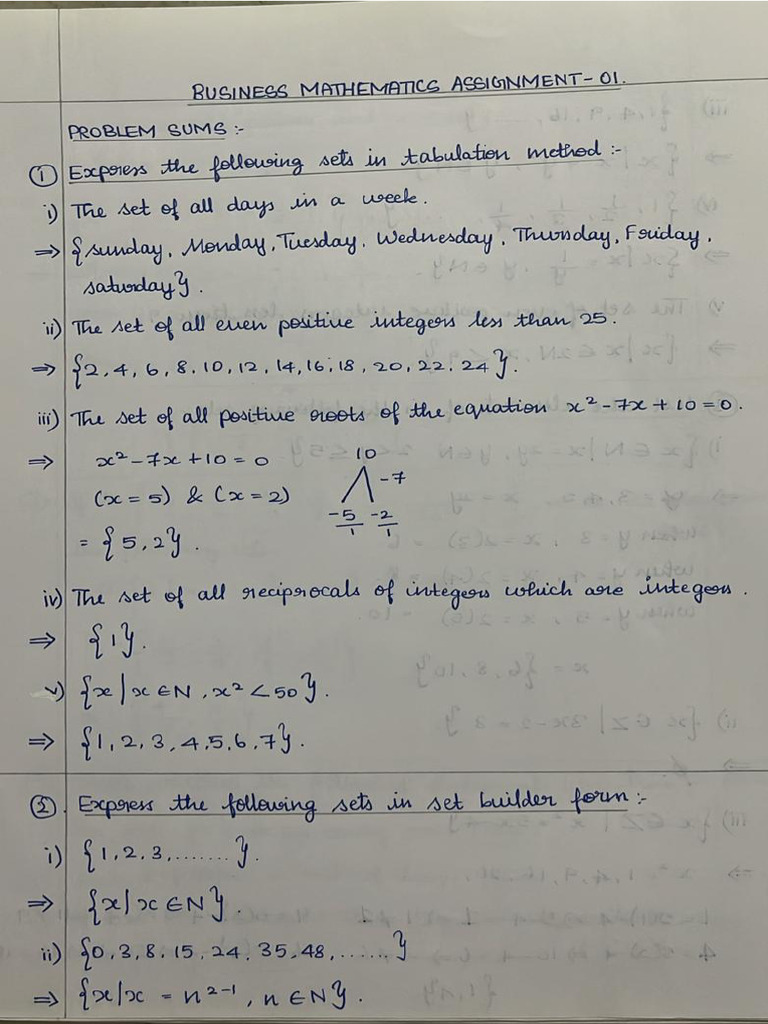 BUSINESS MATHEMATICS ASSIGNMENT-01.
PROBLEM SUMS :-
① Express the following sets in tabulation method :-
i) The set of all days in a week.
⇒ {sunday, Monday, Tuesday, Wednesday, Thursday, Friday,
saturday}.
ii) The set of all even positive integers less than 25.
⇒ {2, 4, 6, 8, 10, 12, 14, 16, 18, 20, 22, 24}.
iii) The set of all positive roots of the equation x² - 7x + 10 = 0.
⇒ x² - 7x + 10 = 0 10
(x = 5) & (x = 2) -7
-5/1 -2/1
= {5, 2}.
iv) The set of all reciprocals of integers which are integers.
⇒ {1}.
v) {x | x ∈ N, x² < 50}.
⇒ {1, 2, 3, 4, 5, 6, 7}.
②. Express the following sets in set builder form :-
i) {1, 2, 3, .......}.
⇒ {x | x ∈ N}.
ii) {0, 3, 8, 15, 24, 35, 48, ......}
⇒ {x | x = n²⁻¹, n ∈ N}.